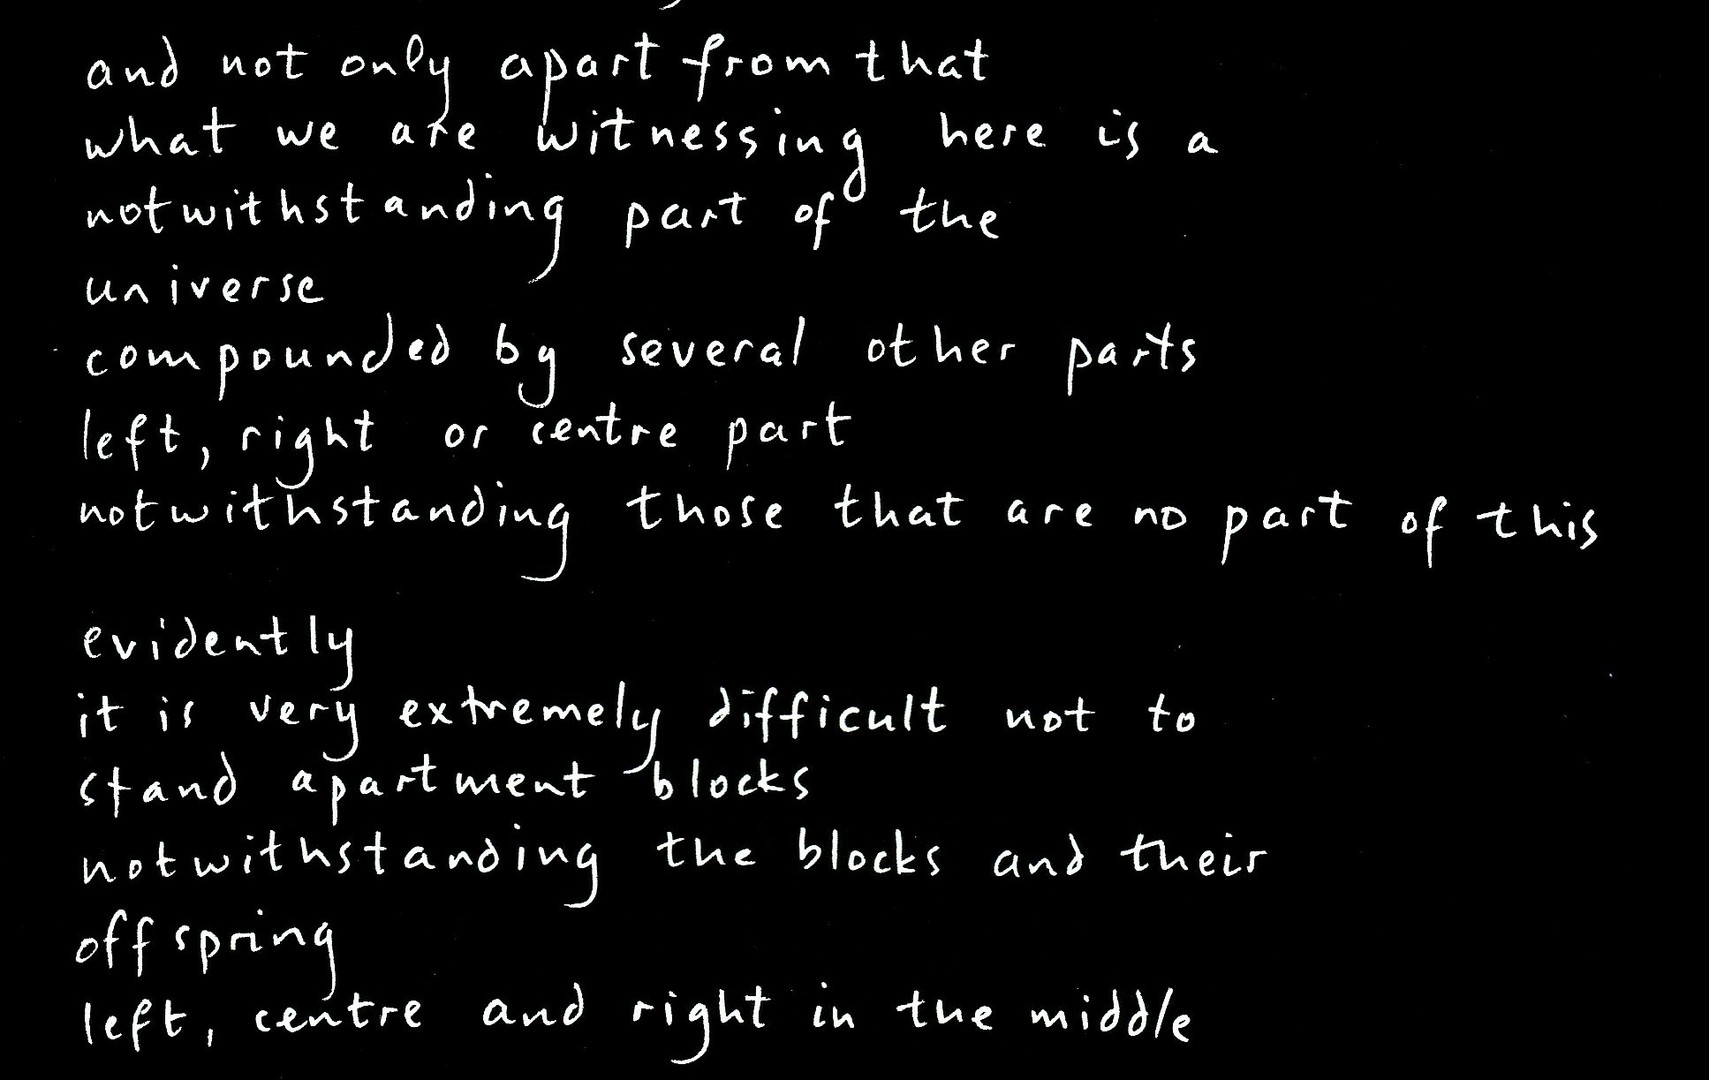 and not only apart from that
what we are witnessing here is a
notwithstanding part of the
universe
compounded by several other parts
left, right or centre part
notwithstanding those that are no part of this
evidently
it is very extremely difficult not to
stand apartment blocks
notwithstanding the blocks and their
offspring
left, centre and right in the middle